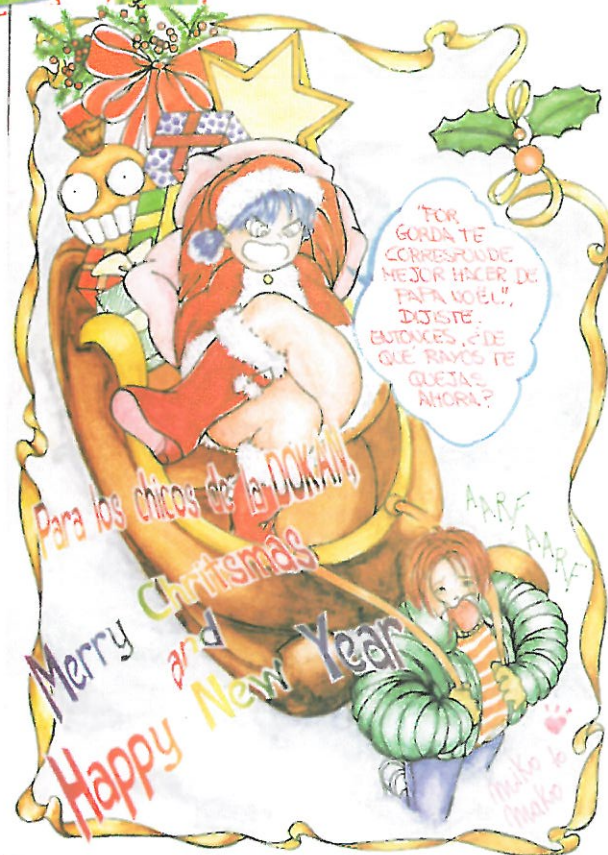 "POR
GORDA TE
CORRESPONDE
MEJOR HACER DE
PAPA NOËL",
DIJISTE.
ENTONCES, ¿DE
QUÉ RAYOS TE
QUEJAS
AHORA?
AARF AARF
Para los chicos de la DOKAN,
Merry Chritismas
and
Happy New Year
miko to
mako